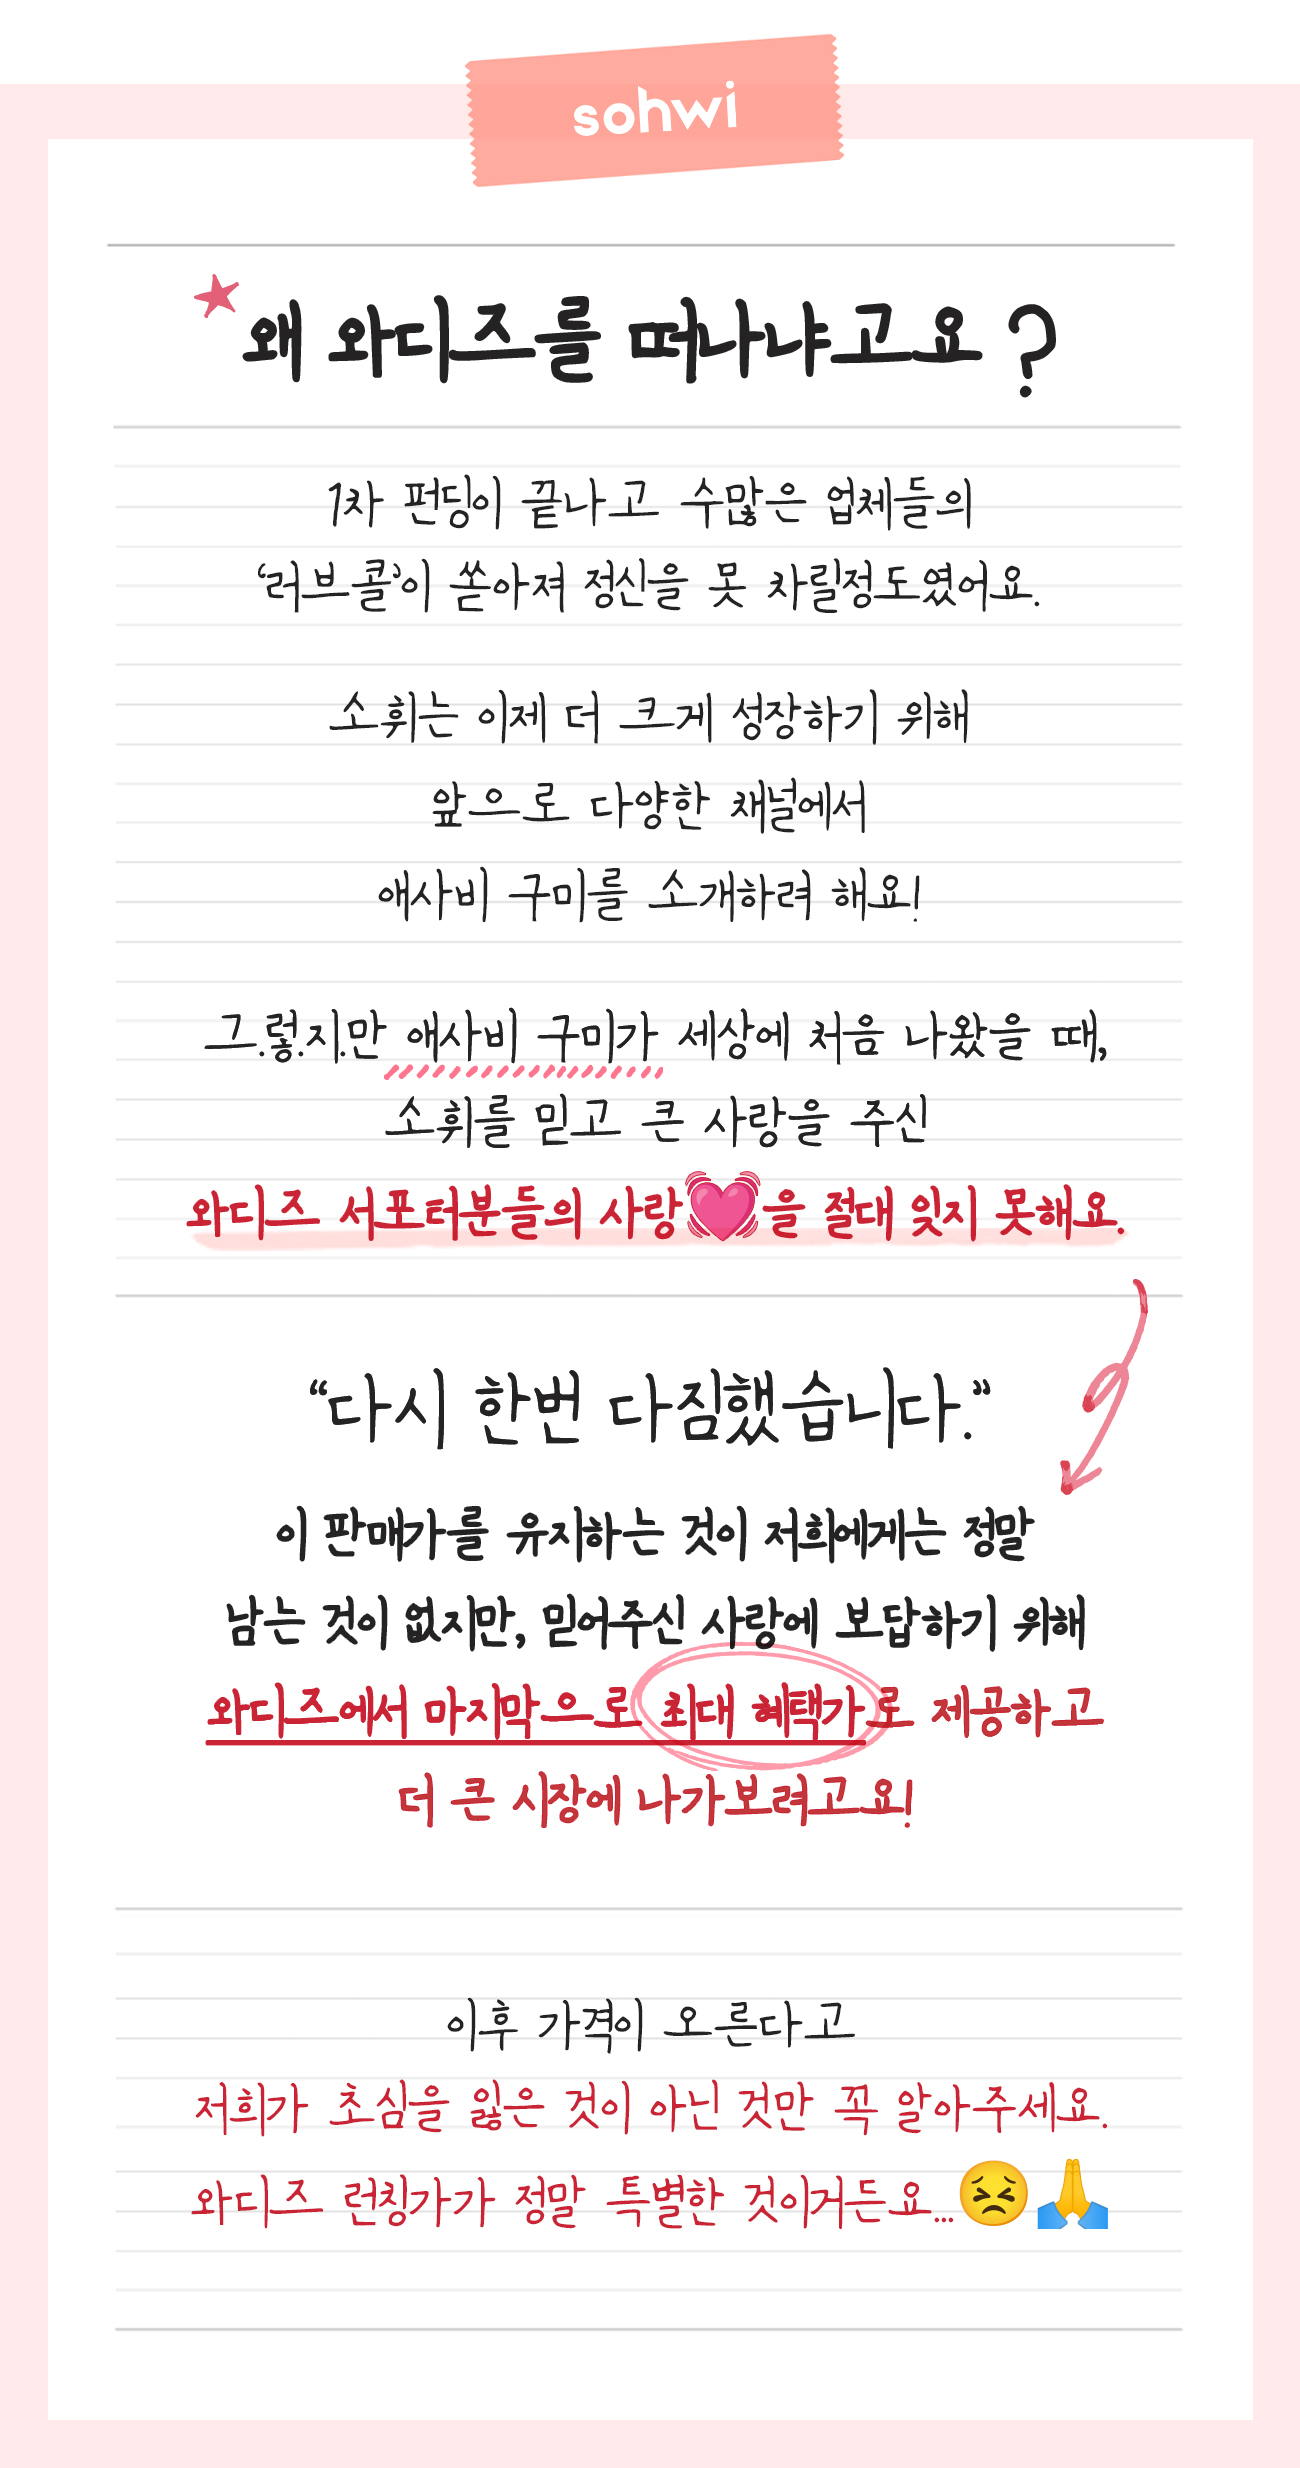 sohwi
왜 와디즈를 떠나냐고요?
1차 펀딩이 끝나고 수많은 업체들의
'러브콜'이 쏟아져 정신을 못 차릴정도였어요.
소휘는 이제 더 크게 성장하기 위해
앞으로 다양한 채널에서
애사비 구미를 소개하려 해요!
그.렇.지.만 애사비 구미가 세상에 처음 나왔을 때,
소휘를 믿고 큰 사랑을 주신
와디즈 서포터분들의 사랑💓을 절대 잊지 못해요.
“다시 한번 다짐했습니다.”
이 판매가를 유지하는 것이 저희에게는 정말
남는 것이 없지만, 믿어주신 사랑에 보답하기 위해
와디즈에서 마지막으로 최대 혜택가로 제공하고
더 큰 시장에 나가보려고요!
이후 가격이 오른다고
저희가 초심을 잃은 것이 아닌 것만 꼭 알아주세요.
와디즈 런칭가가 정말 특별한 것이거든요...😣🙏